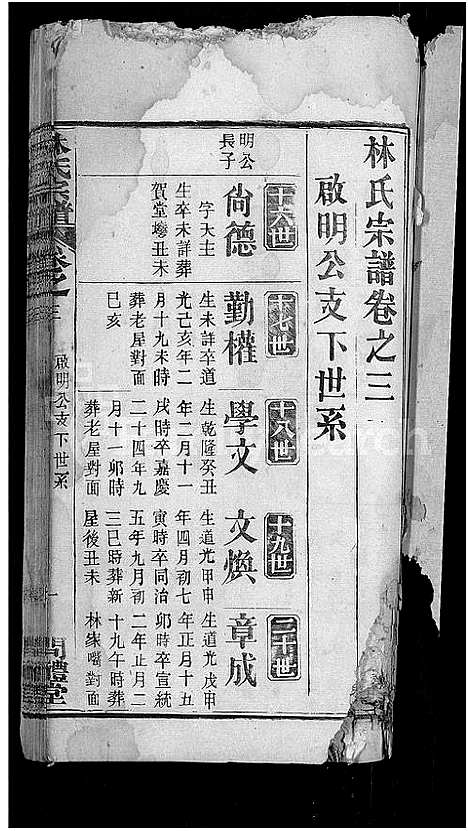 林氏宗譜卷之三
啟明公支下世系
十六世
明公
長子
尙德
字天主
生卒未詳葬
賀堂塝丑未
十七世
勤權
生未詳卒道
光己亥年二
月十九未時
葬老屋對面
巳亥
十八世
學文
生乾隆癸丑
年二月十一
戌時卒嘉慶
二十四年九
月十一卯時
葬老屋對面
十九世
文煥
生道光甲申
年四月初七
寅時卒同治
五年九月初
三巳時葬新
屋後丑未
二十世
章成
生道光戊申
年正月十五
卯時卒宣統
二年正月二
十九午時葬
林家嘴對面
林氏宗譜
卷之三
啟明公支下世系
一
問禮堂